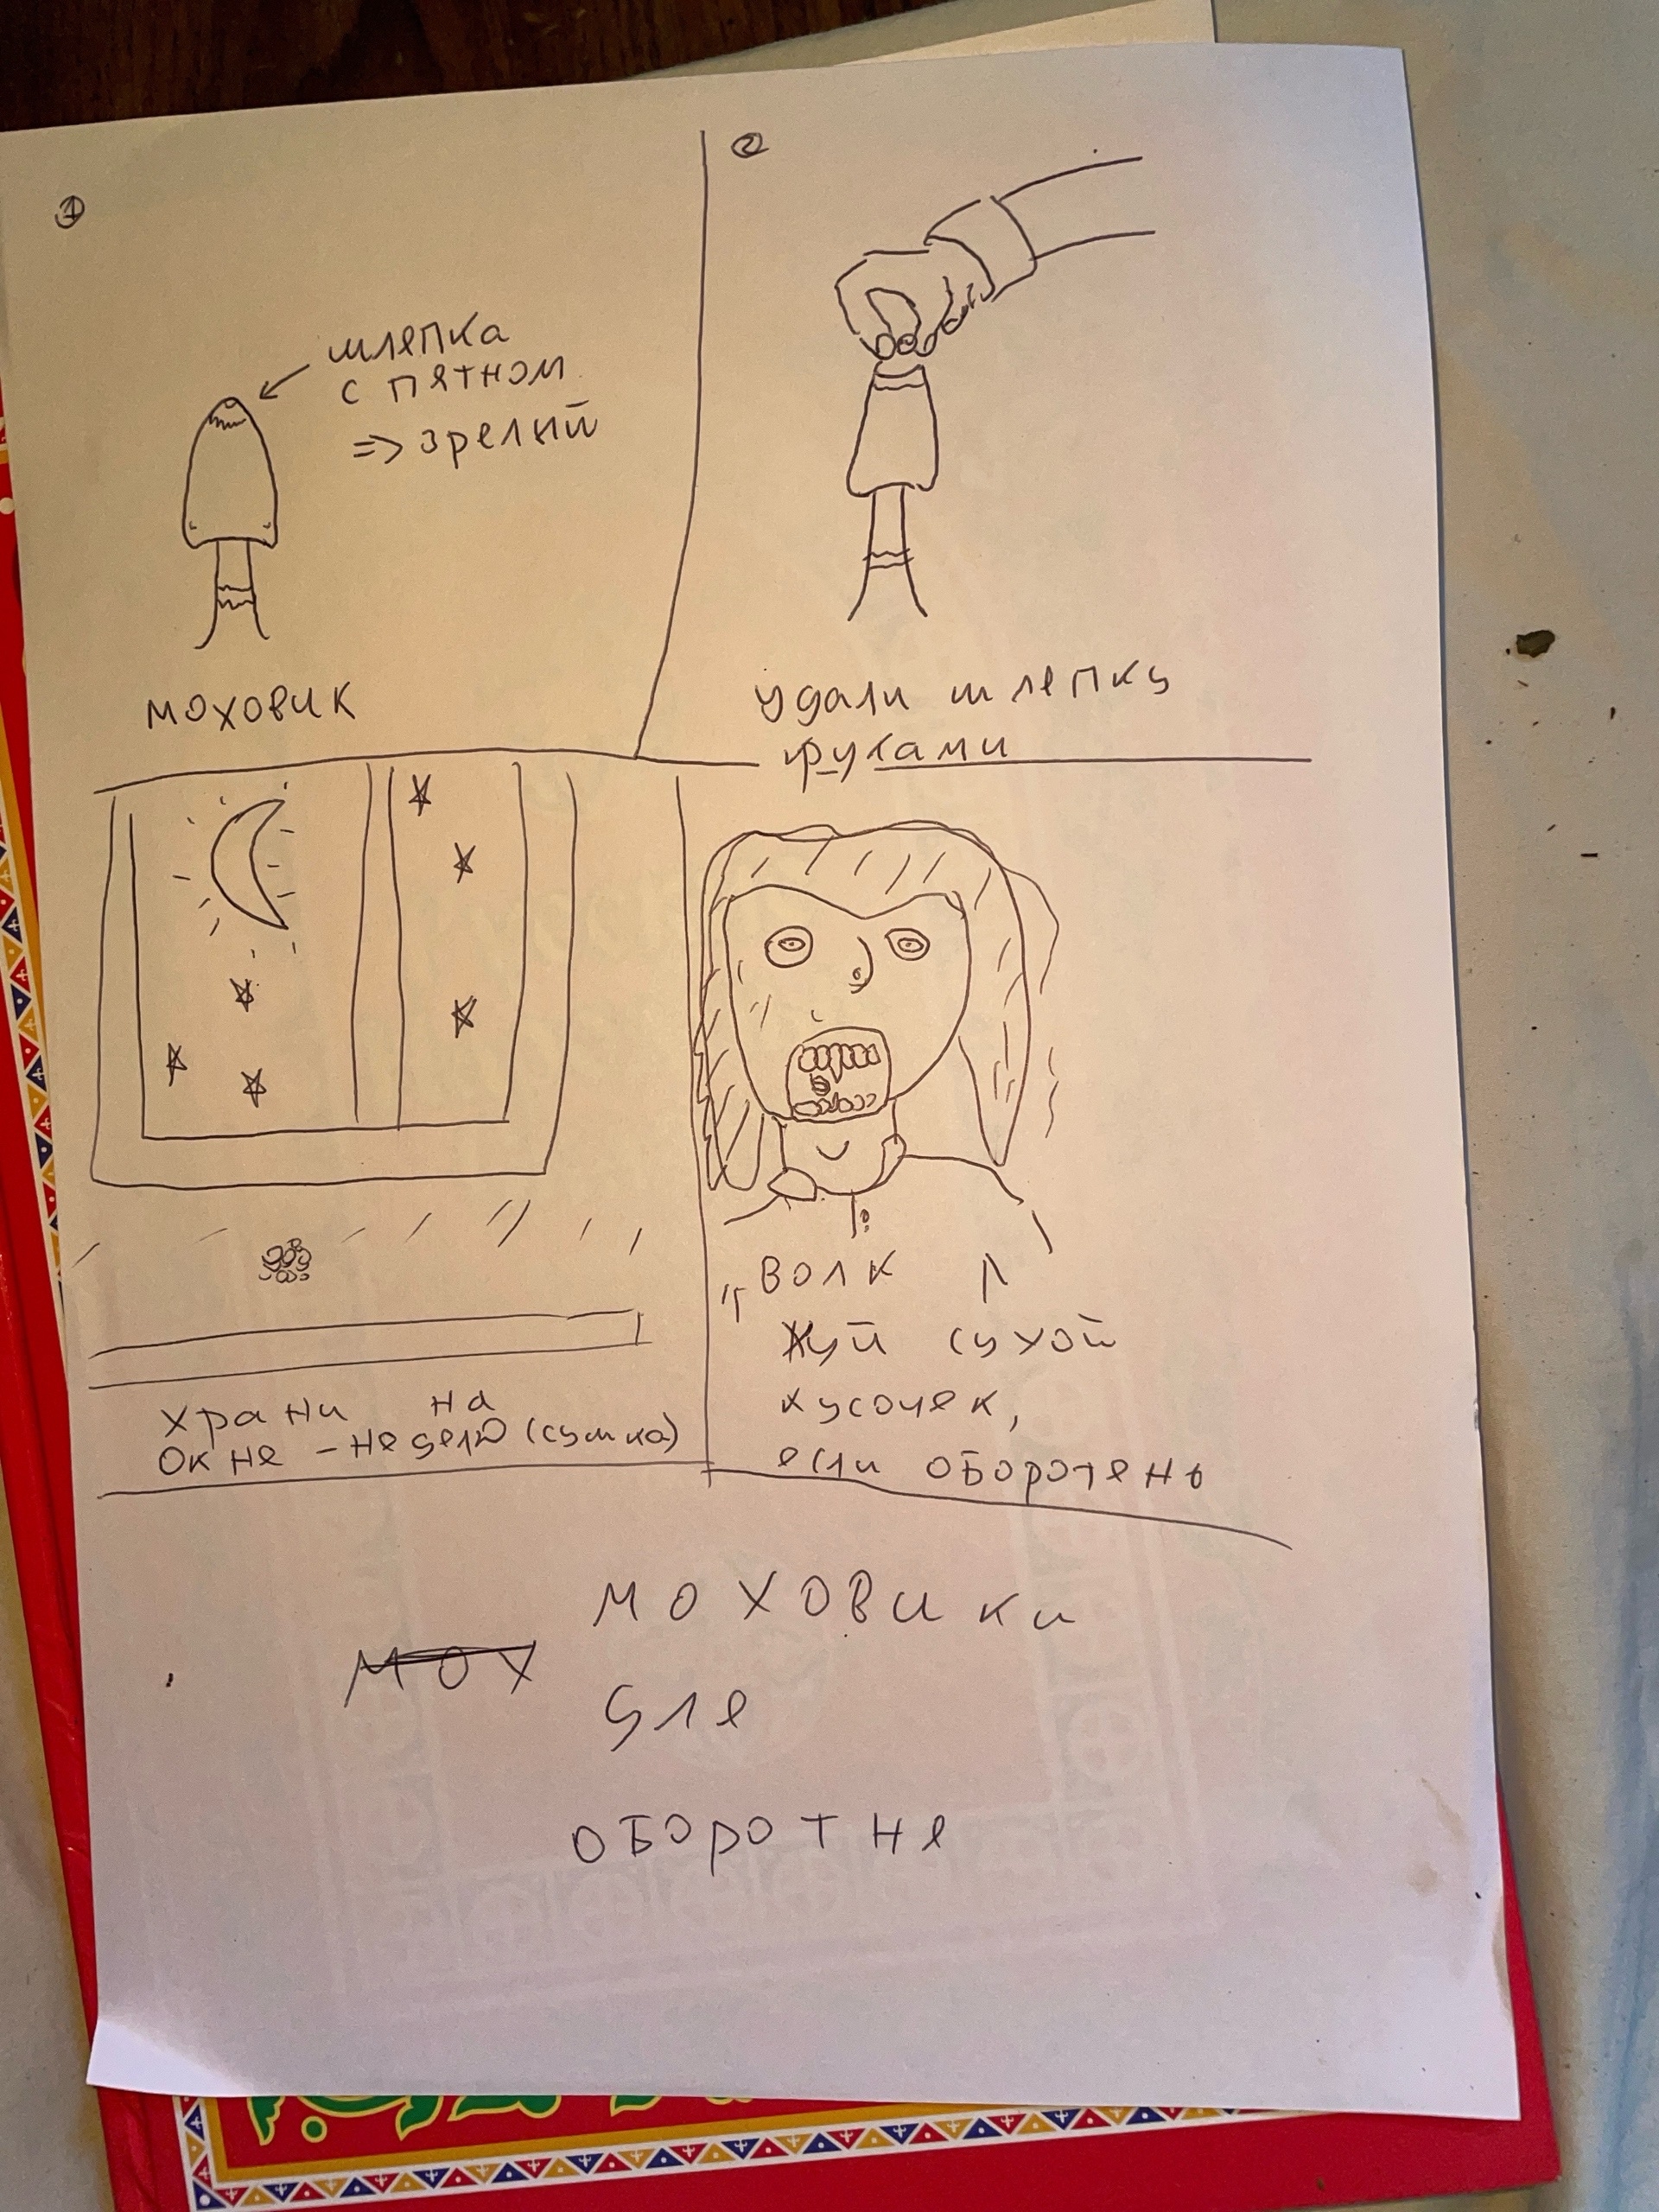 1
шлепка
с пятном
=> зрелый
моховик
2
удали шлепку
руками
храни на
окне - неделю (сушка)
"волк"
жуй сухой
кусочек,
если оборотень
моховики
мох
для
оборотня